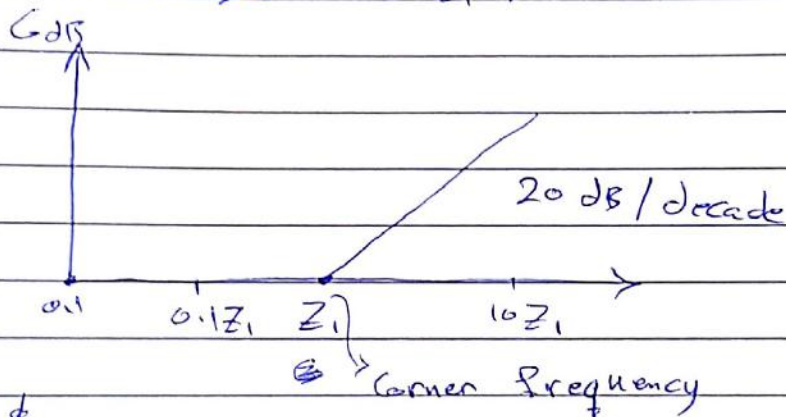 GdB
20 dB / decade
0.1 0.1Z₁ Z₁ 10Z₁
Corner frequency